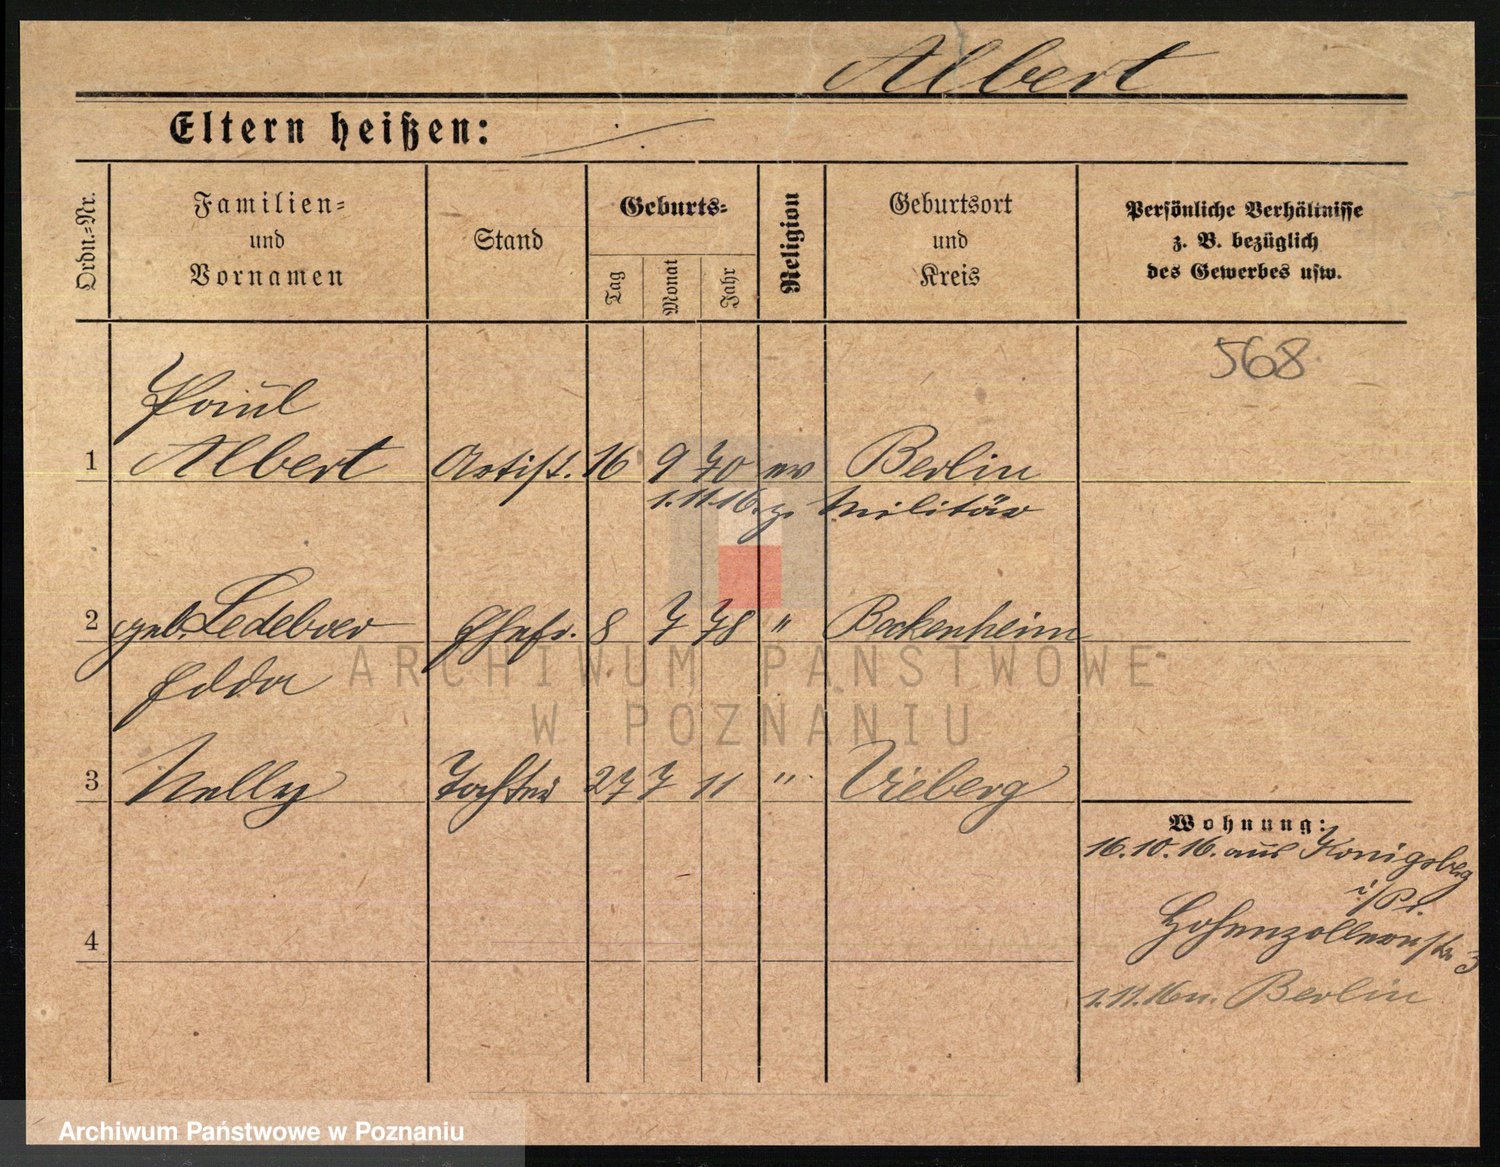 Albert
Eltern heißen: ./.
Ordn.-Nr.
Familien-
und
Vornamen
Stand
Geburts-
Tag
Monat
Jahr
Religion
Geburtsort
und
Kreis
Persönliche Verhältnisse
z. B. bezüglich
des Gewerbes usw.
568
Paul
1 Albert Artist. 16 9 70 ev Berlin
1.11.16. z. Militär
2 geb. Ledeboer Ehefr. 8 7 78 " Beckenheim
Edda
3 Nelly Tochter 27 7 11 " Vieberg
Wohnung:
16.10.16. aus Königsberg
i/Pr.
4
Hohenzollernstr 3
1.11.16 n. Berlin
ARCHIWUM PAŃSTWOWE
W POZNANIU
Archiwum Państwowe w Poznaniu